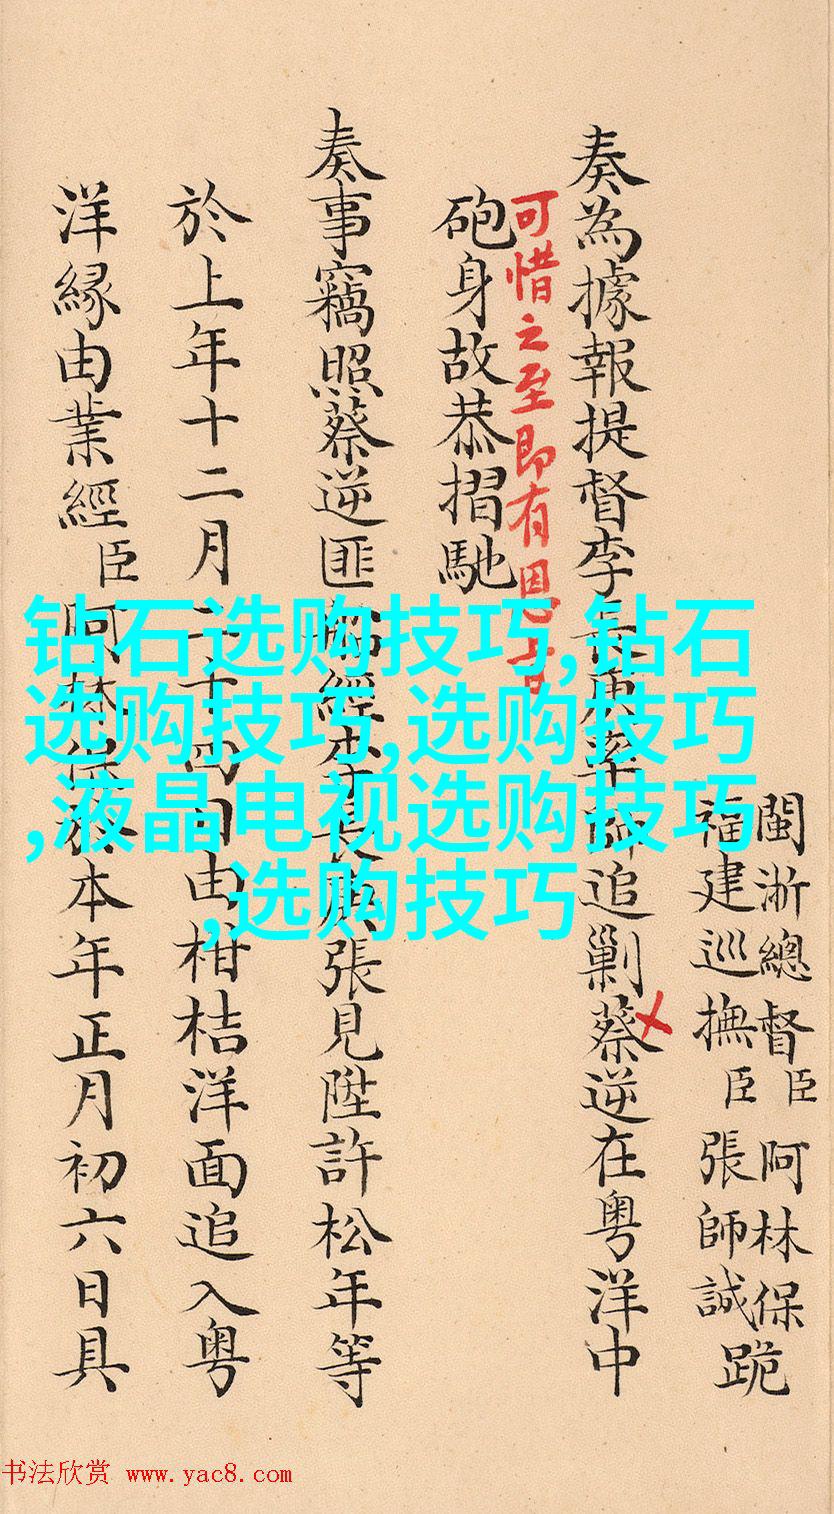 閩浙總督臣阿林保
福建巡撫臣張師誠
跪
奏為據報提督李長庚率師追剿蔡逆在粵洋中
可惜之至即有恩旨
砲身故恭摺馳
奏事竊照蔡逆匪船經李長庚張見陞許松年等
於上年十二月二十四日由柑桔洋面追入粵
洋緣由業經臣阿林保於本年正月初六日具
钻石选购技巧,钻石
选购技巧,选购技巧
,液晶电视选购技巧
,选购技巧
书法欣赏 www.yac8.com